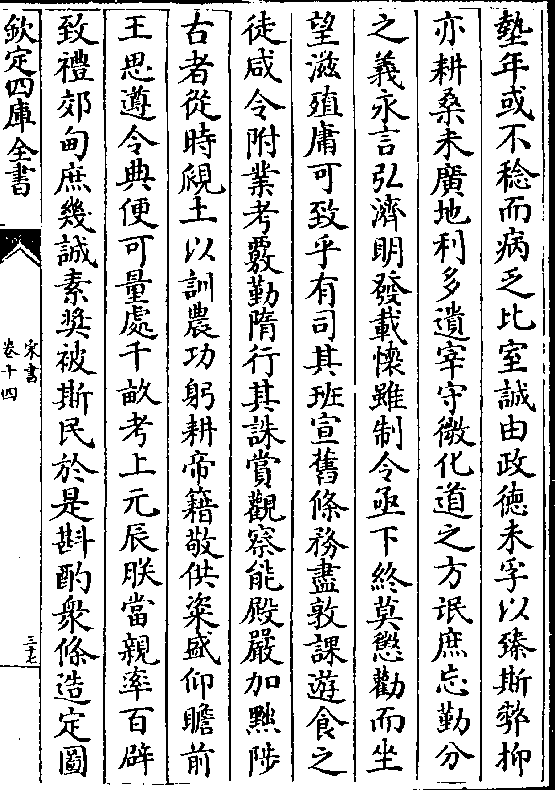 墊年或不稔而病乏比室誠由政德未孚以臻斯弊抑
亦耕桑未廣地利多遺宰守微化道之方氓庶忘勤分
之義永言弘濟明發載懷雖制令亟下終莫懲勸而坐
望滋殖庸可致乎有司其班宣舊條務盡敦課遊食之
徒咸令附業考覈勤隋行其誅賞觀察能殿嚴加黜陟
古者從時覛土以訓農功躬耕帝籍敬供粢盛仰瞻前
王思遵令典便可量處千畝考上元辰朕當親率百辟
致禮郊甸庶幾誠素奬被斯民於是斟酌衆條造定圖
欽定四庫全書
宋書
卷十四
三十七